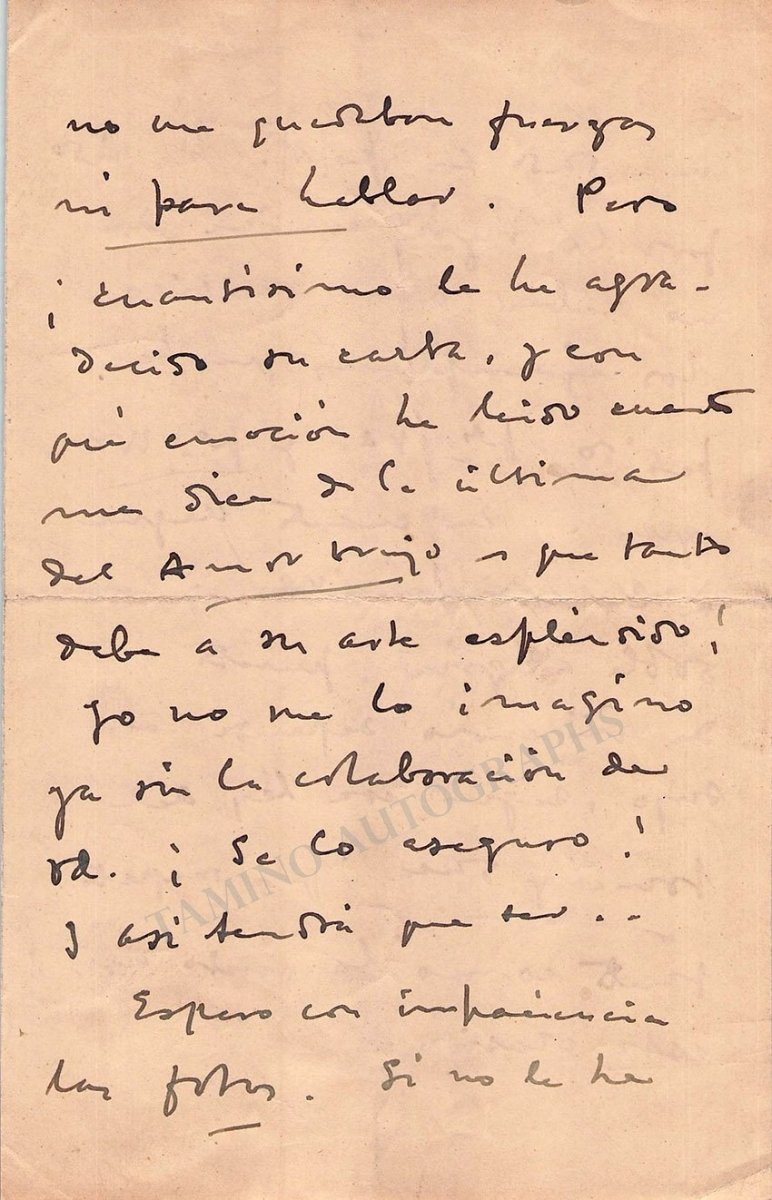 no me quedaban fuerzas
ni para hablar. Pero
¡cuantísimo le he agra-
decido su carta, y con
qué emoción he leido cuanto
me dice de la última
del Amor brujo que tanto
debe a su arte espléndido!
Yo no me lo imagino
ya sin la colaboración de
Vd. ¡Se lo aseguro!
Y así tendrá que ser..
Espero con impaciencia
las fotos. Si no le he
TAMINO AUTOGRAPHS